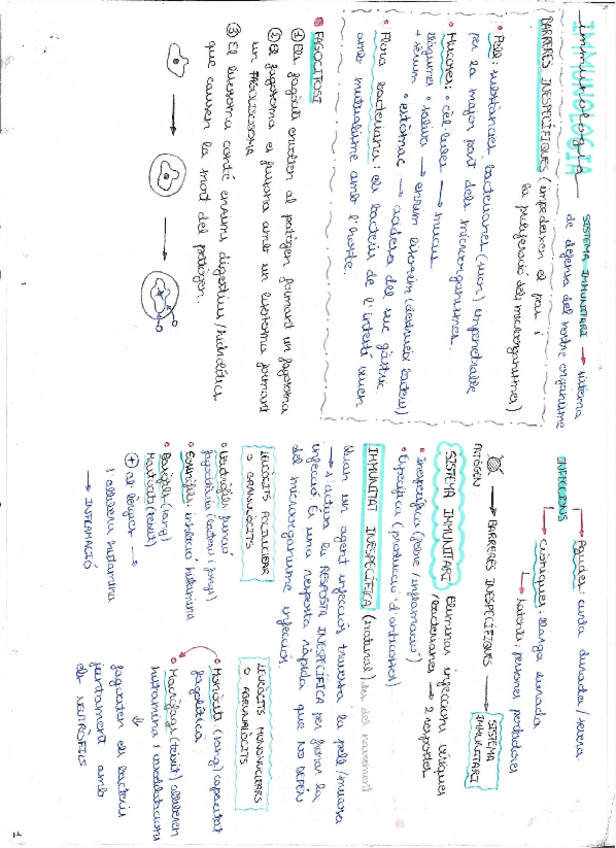 IMMUNOLOGIA
immunologia
SISTEMA IMMUNITARI → sistema
de defensa del nostre organisme
BARRERES INESPECÍFIQUES (impedeixen el pas i
la proliferació dels microorganismes)
• Pell: substàncies bacterianes (suor) impenetrable
per la major part dels microorganismes.
• Mucoses: • → mucus
llàgrimes • saliva → enzim lisozim (destrueix bacteris)
+ sèrum • estómac → acidesa del suc gàstric
• Flora bacteriana: els bacteris de l'intestí viuen
amb mutualisme amb l'hoste.
• FAGOCITOSI
① Els fagòcits envolten al patògen formant un fagosoma
② El fagosoma es fusiona amb un lisosoma formant
un FAGOLISOSOMA
③ El lisosoma conté enzims digestius/hidrolítics
que causen la mort del patògen.
INFECCIONS
Agudes: curta durada / severa
Cròniques: llarga durada
Latents: persones portadores
PATÒGEN → BARRERES INESPECÍFIQUES → SISTEMA
IMMUNITARI
SISTEMA IMMUNITARI Eliminar infeccions víriques
/bacterianes → 2 respostes
• Inespecífica (febre / inflamació)
• Específica (producció d'anticossos)
IMMUNITAT INESPECÍFICA (natural) des del naixement
Quan un agent infecciós travessa la pell/mucosa
→ s'activa la RESPOSTA INESPECÍFICA per frenar la
infecció És una resposta ràpida que NO DEPÈN
del microorganisme infecciós.
LEUCÒCITS POLINUCLEAR
O GRANULÒCITS
• Neutròfils: funció
fagocitària (bacteris i fongs)
• Eosinòfils: histamina
• Basòfils (sang)
Mastòcits (teixit)
⊕ al·lèrgies →
s'allibera histamina
→ INFLAMACIÓ
LEUCÒCITS MONONUCLEARS
O AGRANULÒCITS
• Monòcits (sang) capacitat
fagocítica
• Macròfags (teixit) alliberen
histamina i
fagociten els bacteris
juntament amb
els NEUTRÒFILS
1